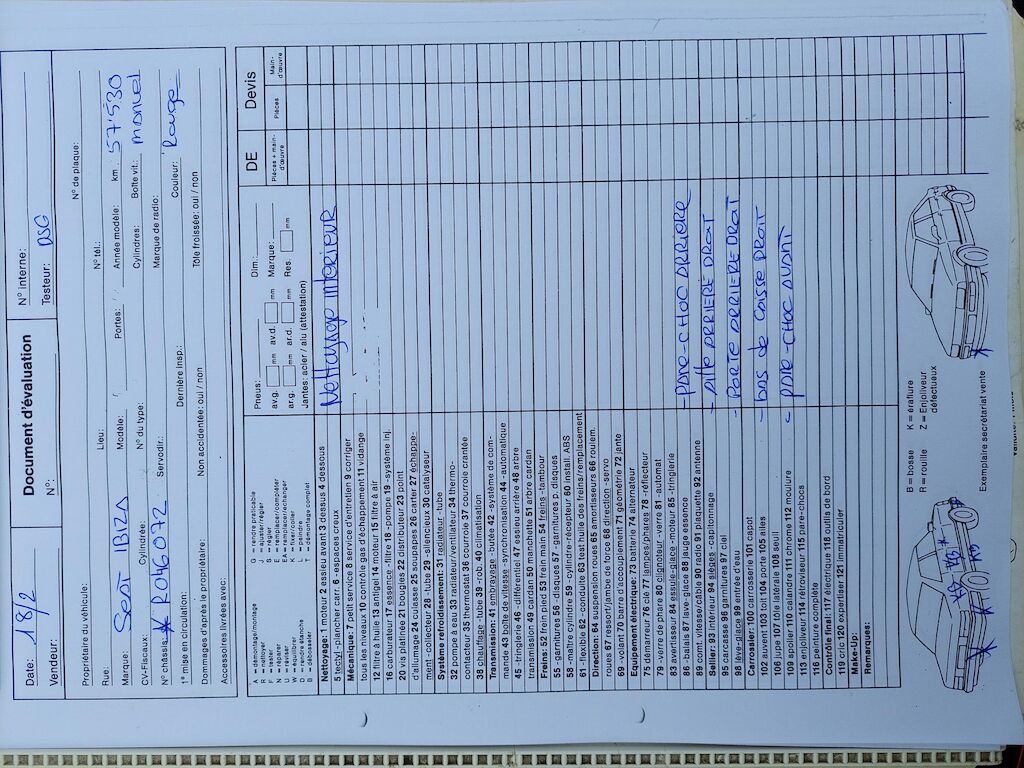 Document d'évaluation
Date: 18/2
N°:
N° interne:
Vendeur:
Testeur: DSG
Propriétaire du véhicule:
N° de plaque:
Rue:
Lieu:
N° tél.:
Marque: SEAT IBIZA
Modèle:
Portes:
Année modèle:
km. 57'530
CV-Fiscaux:
Cylindrée:
N° du type:
Cylindres:
Boîte vit.: manuel
N° Châssis:
Servodir.:
Marque de radio:
1re mise en circulation:
Dernière insp.:
Couleur: Rouge
Dommages d'après le propriétaire:
Non accidentée: oui / non
Tôle froissée: oui / non
Accessoires livrées avec:
Pneus:
Dim.:
av.g. mm av.d. mm Marque:
ar.g. mm ar.d. mm Res. mm
Jantes: acier / alu (attestation)
DE
Devis
Pièces + main-d'œuvre
Pièces
Main-d'œuvre
Nettoyage: 1 moteur 2 essieu avant 3 dessous 4 dessous
Nettoyage interieur
5 tectyl -plancher carr. 6 -espaces creux
Mécanique: 7 petit service 8 service d'entretien 9 corriger
tous niveaux 10 contrôle gaz d'échappement 11 vidange
12 filtre à huile 13 antigel 14 moteur 15 filtre à air
16 carburateur 17 essence -filtre 18 -pompe 19 -système inj.
20 vis platinée 21 bougies 22 distributeur 23 point
d'allumage 24 culasse 25 soupapes 26 carter 27 échappe-
ment -collecteur 28 -tube 29 -silencieux 30 catalyseur
Système refroidissement: 31 radiateur -tube
32 pompe à eau 33 radiateur/ventilateur 34 thermo-
contacteur 35 thermostat 36 courroie 37 courroie crantée
38 chauffage -tube 39 -rob. 40 climatisation
Transmission: 41 embrayage -butée 42 -système de com-
mande 43 boîte de vitesse -synchronisation 44 -automatique
45 -tringlerie 46 -différentiel 47 essieu arrière 48 arbre
transmission 49 cardan 50 manchette 51 arbre cardan
Freins: 52 frein pied 53 frein main 54 freins -tambour
55 -garnitures 56 -disques 57 -garnitures p. disques
58 -maître cylindre 59 -cylindre-récepteur 60 install. ABS
61 -flexible 62 changement huile des freins 63 test huile des freins/remplacement
Direction: 64 suspension roues 65 amortisseurs 66 roulem.
roues 67 ressort/jambe de force 68 direction -servo
69 -volant 70 barre d'accouplement 71 géométrie 72 jante
Equipement électrique: 73 batterie 74 alternateur
75 démarreur 76 clé 77 lampes/phares 78 -réflecteur
79 -verre de phare 80 clignoteur -verre 81 -automat
83 avertisseur 84 essuie-glace -moteur 85 -tringlerie
- PARE-CHOC ARRIERE
- Aile ARRIERE DROIT
- PORTE ARRIERE DROIT
- bas de caisse DROIT
- PARE-CHOC AVANT
95 carcasse 96 garnitures 97 ciel
98 lève-glace 99 entrée d'eau
Carrossier: 100 carrosserie 101 capot
102 auvent 103 toit 104 portes 105 ailes
106 jupe 107 tôle intérieure 108 tôle latérale
109 spoiler 110 calandre 111 chrome 112 moulure
113 enjoliveur 114 rétroviseur 115 pare-chocs
116 peinture complète
Contrôle final: 117 électrique 118 outils de bord
119 cric 120 expertiser 121 immatriculer
Make-Up:
Remarques:
B = bosse K = éraflure
R = rouille Z = Enjoliveur défectueux
Exemplaire secrétariat vente